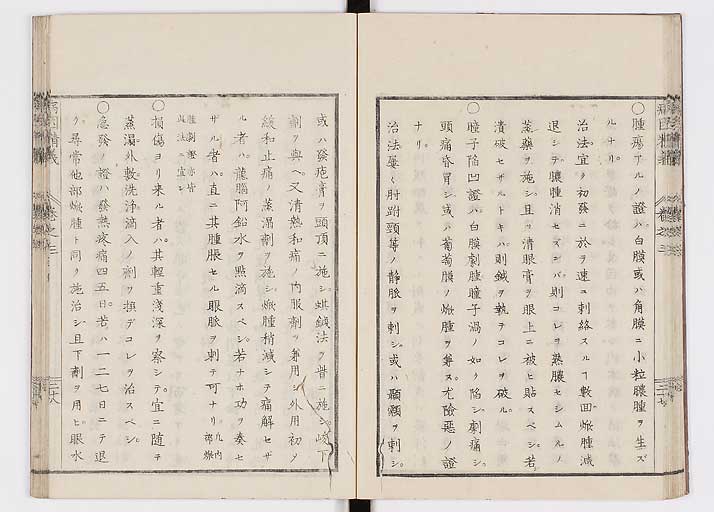 〇腫瘍アルノ證ハ白膜或ハ角膜ニ小粒膿腫ヲ生ズ
ルナリ。
治法宜ク初發ニ於ヲ速ニ刺絡スルヿ數回焮腫減
退シテ膿腫消セズンバ則コレヲ蒸膿セシムルノ
蒸藥ヲ施シ且ツ清眼膏ヲ眼上ニ被ヒ貼スベシ若
潰破セザルトキハ則鍼ヲ執テコレヲ破ル。
〇瞳子陷凹證ハ白膜劇腫瞳子渦ノ如ク陷シ劇痛シ
頭痛昏冒シ或ハ葡萄膜ノ焮腫ヲ兼ヌ尤險惡ノ證
ナリ。
治法屡〻肘跗頸等ノ静脈ヲ刺シ或ハ顳顬ヲ刺シ
或ハ發疱膏ヲ頭頂ニ施シ蜞鍼法ヲ眥ニ施シ峻下
劑ヲ與ヘ又清熱和痛ノ内服劑ヲ兼用シ外用初メ
緩和止痛ノ蒸漏劑ヲ施シ焮腫稍減シテ痛解セザ
ル者ハ龍腦阿鉛水ヲ點滴スベシ若ナホ功ヲ奏セ
サル者ハ直ニ其腫脹セル眼脈ヲ刺テ可ナリ 凡内部焮
腫劇壓亦皆此法ニ宜シ
〇損傷ヨリ来ル者ハ其輕重淺深ヲ察シテ宜ニ随テ
蒸漏外敷洗浄滴入ノ劑ヲ撰デコレヲ治スベシ
〇急發ノ證ハ發熱疼痛四五日若ハ一二七日ニテ退
ク尋常他部焮腫ト同ク施治シ且下劑ヲ用ヒ眼水
卷之三
三十七
卷之三
三十八